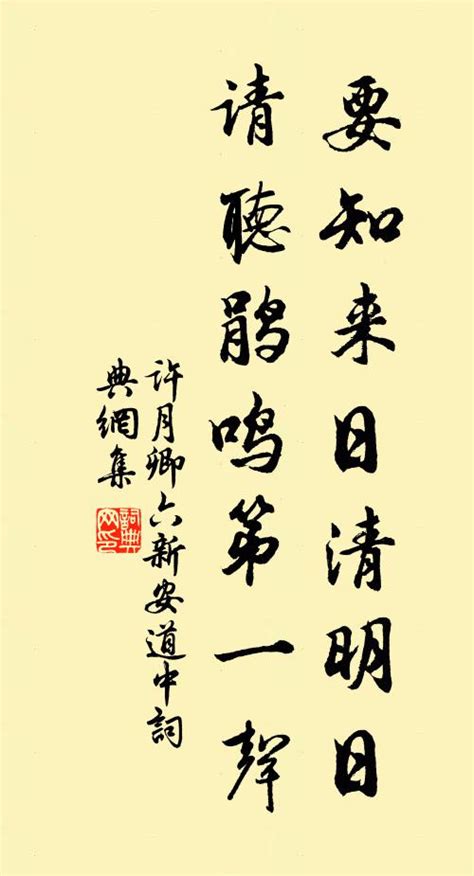 要知来日清明日
请聽鹃鸣第一聲
许月卿六新安道中詞
典網集
詞典网印